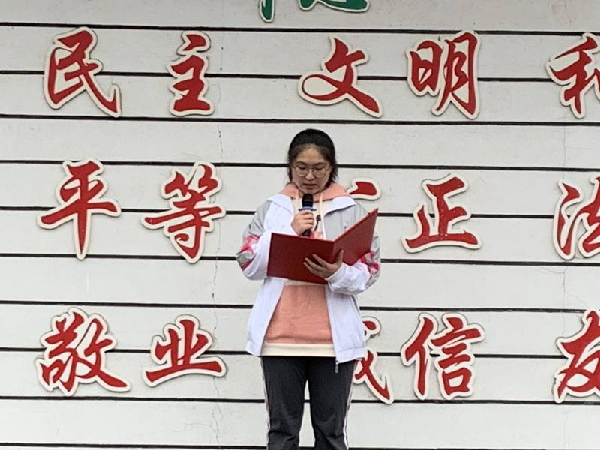 民主 文明 和
平等 正 法
敬业 诚信 友